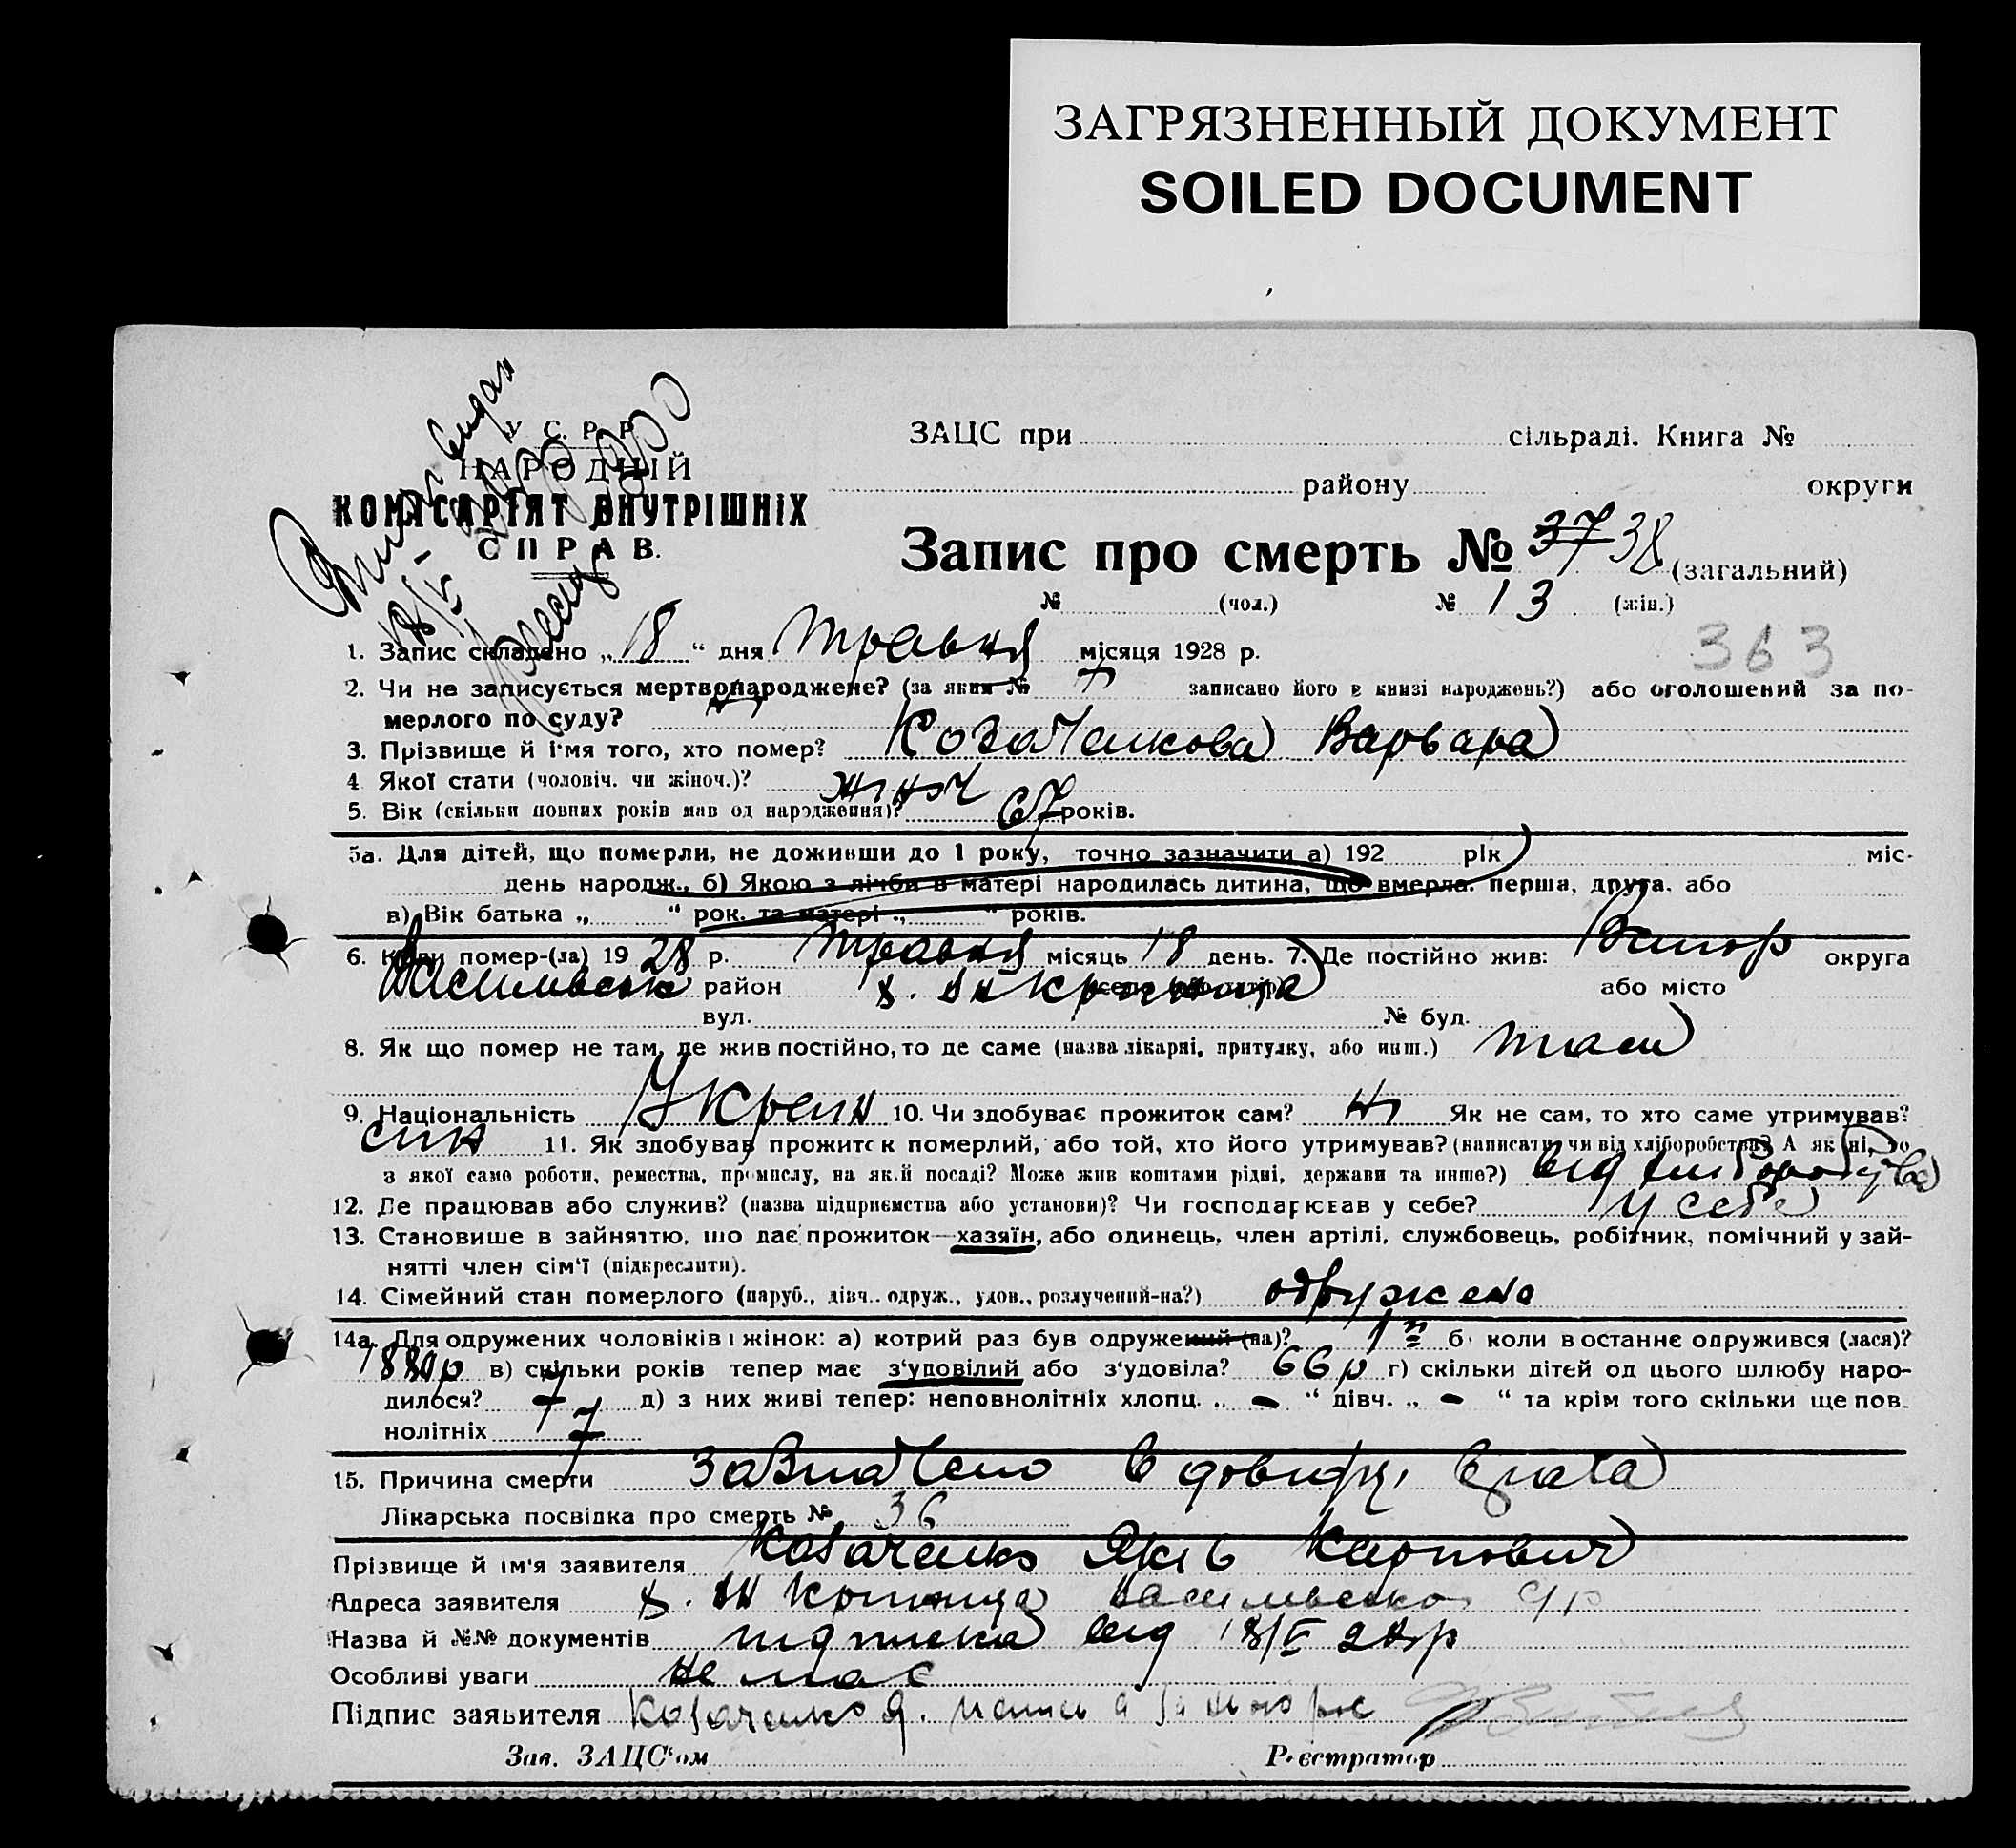 ЗАГРЯЗНЕННЫЙ ДОКУМЕНТ
SOILED DOCUMENT
У. С. Р. Р.
НАРОДНІЙ
КОМІСАРІЯТ ВНУТРІШНІХ
СПРАВ.
ЗАЦС при сільраді. Книга №
району округи
Запис про смерть № 37 38 (загальний)
№ (чол.) № 13 (жін.)
363
1. Запис складено „18“ дня Травня місяця 1928 р.
2. Чи не записується мертвонароджене? (за яким № записано його в книзі народжень?) або оголошений за по-
мерлого по суду? ні
3. Прізвище й ім'я того, хто помер? Козаченкова Варвара
4 Якої стати (чоловіч. чи жіноч.)? жіноч
5. Вік (скільки повних років мав од народження)? 67 років.
5а. Для дітей, що померли, не доживши до 1 року, точно зазначити а) 192 рік міс.
день народж., б) Якою з лічби в матері народилась дитина, що вмерла. перша, друга. або
в) Вік батька „ “ рок. та матері „ “ років.
6. Коли помер-(ла) 1928 р. Травня місяць 18 день. 7. Де постійно жив: Запор округа
Васильвськ район х. Криниця або місто
вул. № буд.
8. Як що помер не там, де жив постійно, то де саме (назва лікарні, притулку, або инш.) там
9. Національність Україн 10. Чи здобуває прожиток сам? ні Як не сам, то хто саме утримував?
син 11. Як здобував прожиток померлий, або той, хто його утримував? (написати, чи від хліборобства? А як ні, то
з якої само роботи, ремества, промислу, на якій посаді? Може жив коштами рідні, держави та инше?) від хліборобства
12. Де працював або служив? (назва підприємства або установи)? Чи господарював у себе? у себе
13. Становище в зайняттю, що дає прожиток—хазяїн, або одинець, член артілі, службовець, робітник, помічний у зай-
нятті член сім'ї (підкреслити).
14. Сімейний стан померлого (паруб., дівч.. одруж., удов., розлучений-на?) одружена
14а. Для одружених чоловіків і жінок: а) котрий раз був одружений (на)? 1й б) коли востаннє одружився (лася)?
1880р в) скільки років тепер має з'удовілий або з'удовіла? 66 р г) скільки дітей од цього шлюбу наро-
дилося? 7 д) з них живі тепер: неповнолітніх хлопц. „ - “ дівч. „ - “ та крім того скільки ще пов-
нолітніх 7
15. Причина смерти Зазначено в довідці врача
Лікарська посвідка про смерть № 36
Прізвище й ім'я заявителя Козаченко Яків Карпович
Адреса заявителя х. Криниця Васильвсько
Назва й №№ документів підписка від 18/V 28р
Особливі уваги не має
Підпис заявителя Козаченко Я.
Зав. ЗАЦС'ом Реєстратор